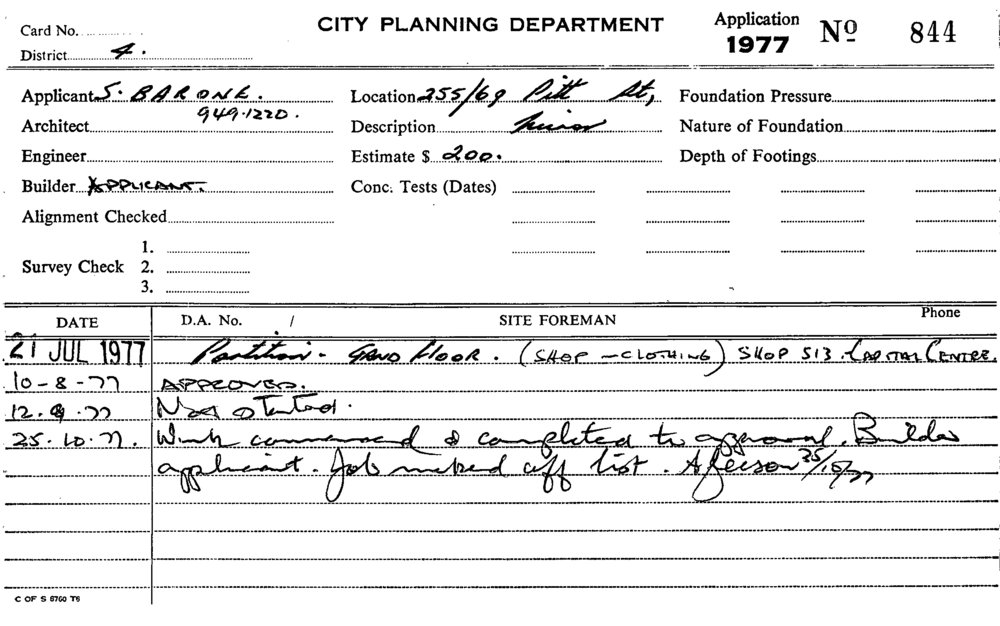 Card No.
CITY PLANNING DEPARTMENT
Application 1977 Nº 844
District 4.
Applicant S. BARONE. Location 255/69 Pitt St, Foundation Pressure
949.1220.
Architect Description Minor Nature of Foundation
Engineer Estimate $ 200. Depth of Footings
Builder APPLICANT. Conc. Tests (Dates)
Alignment Checked
1.
Survey Check 2.
3.
DATE D.A. No. / SITE FOREMAN Phone
21 JUL 1977 Partition - GRND FLOOR. (SHOP - CLOTHING) SHOP S13. CAPITAL CENTRE.
10-8-77 APPROVED.
12.9.77 Not started.
25.10.77. Work commenced & completed to approval. Builder
applicant. Job marked off list. 25/10/77
C OF S 8760 T6